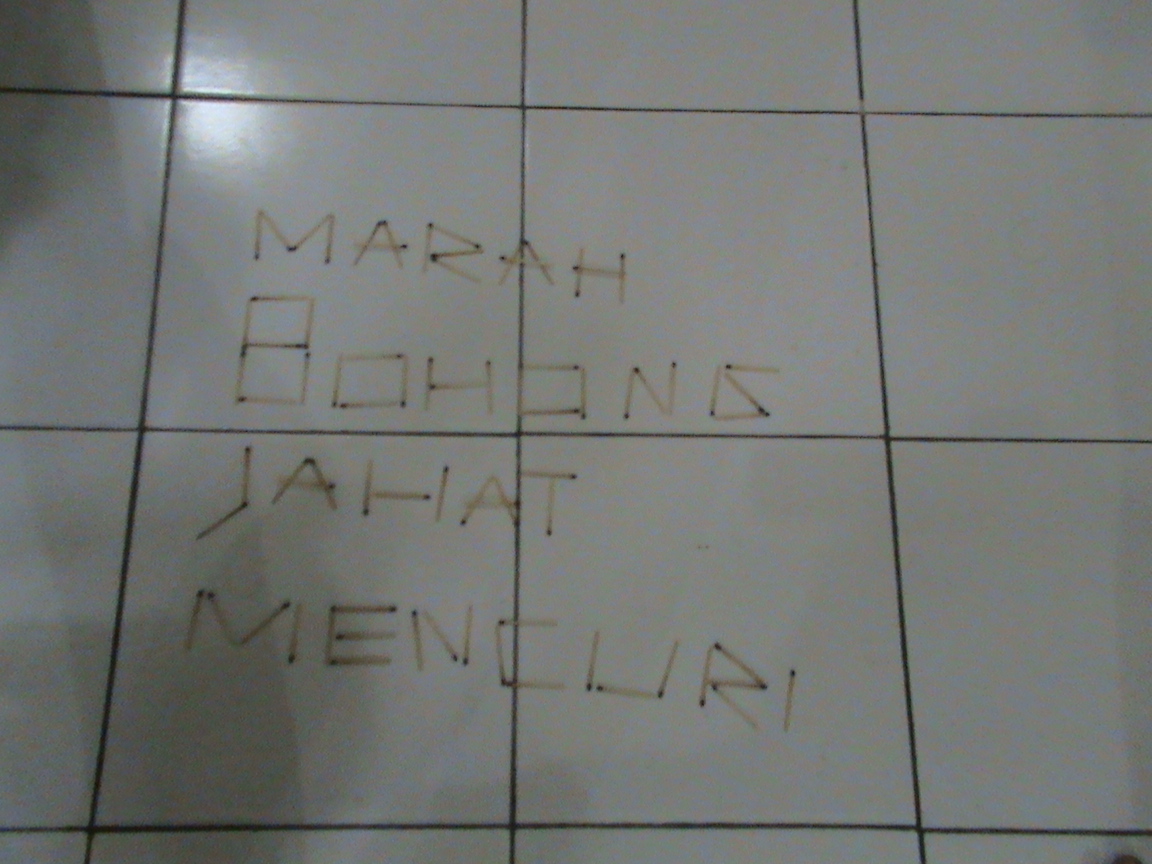 MARAH
BOHONG
JAHAT
MENCURI